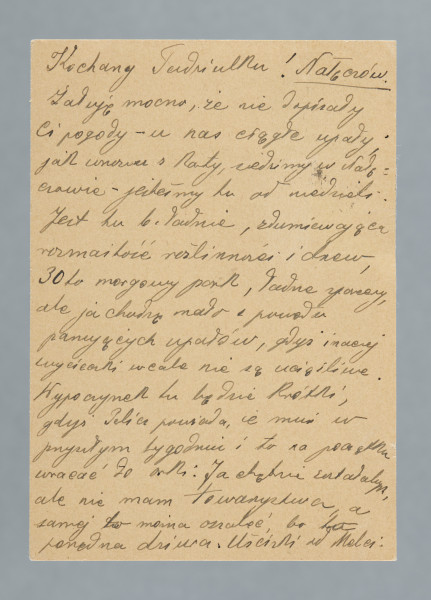 Kochany Tadziulku! Nałęczów.
Żałuję mocno, że nie dopisały
Ci pogody – u nas ciągle upały,
jak wnosisz z karty, siedzimy w Nałę=
czowie – jesteśmy tu od niedzieli.
Jest tu b. ładnie, zdumiewająca
rozmaitość roślinności i drzew,
30to morgowy park, ładne spacery,
ale ja chodzę mało z powodu
panujących upałów, gdyż inaczej
wycieczki wcale nie są uciążliwe.
Wypoczynek tu będzie krótki,
gdyż powiada, że musi w
przyszłym tygodniu i to na początku
wracać do Ja chętnie zostałabym,
ale nie mam towarzystwa, a
samej to można oszaleć, bo
porządna dziura. Uściski od